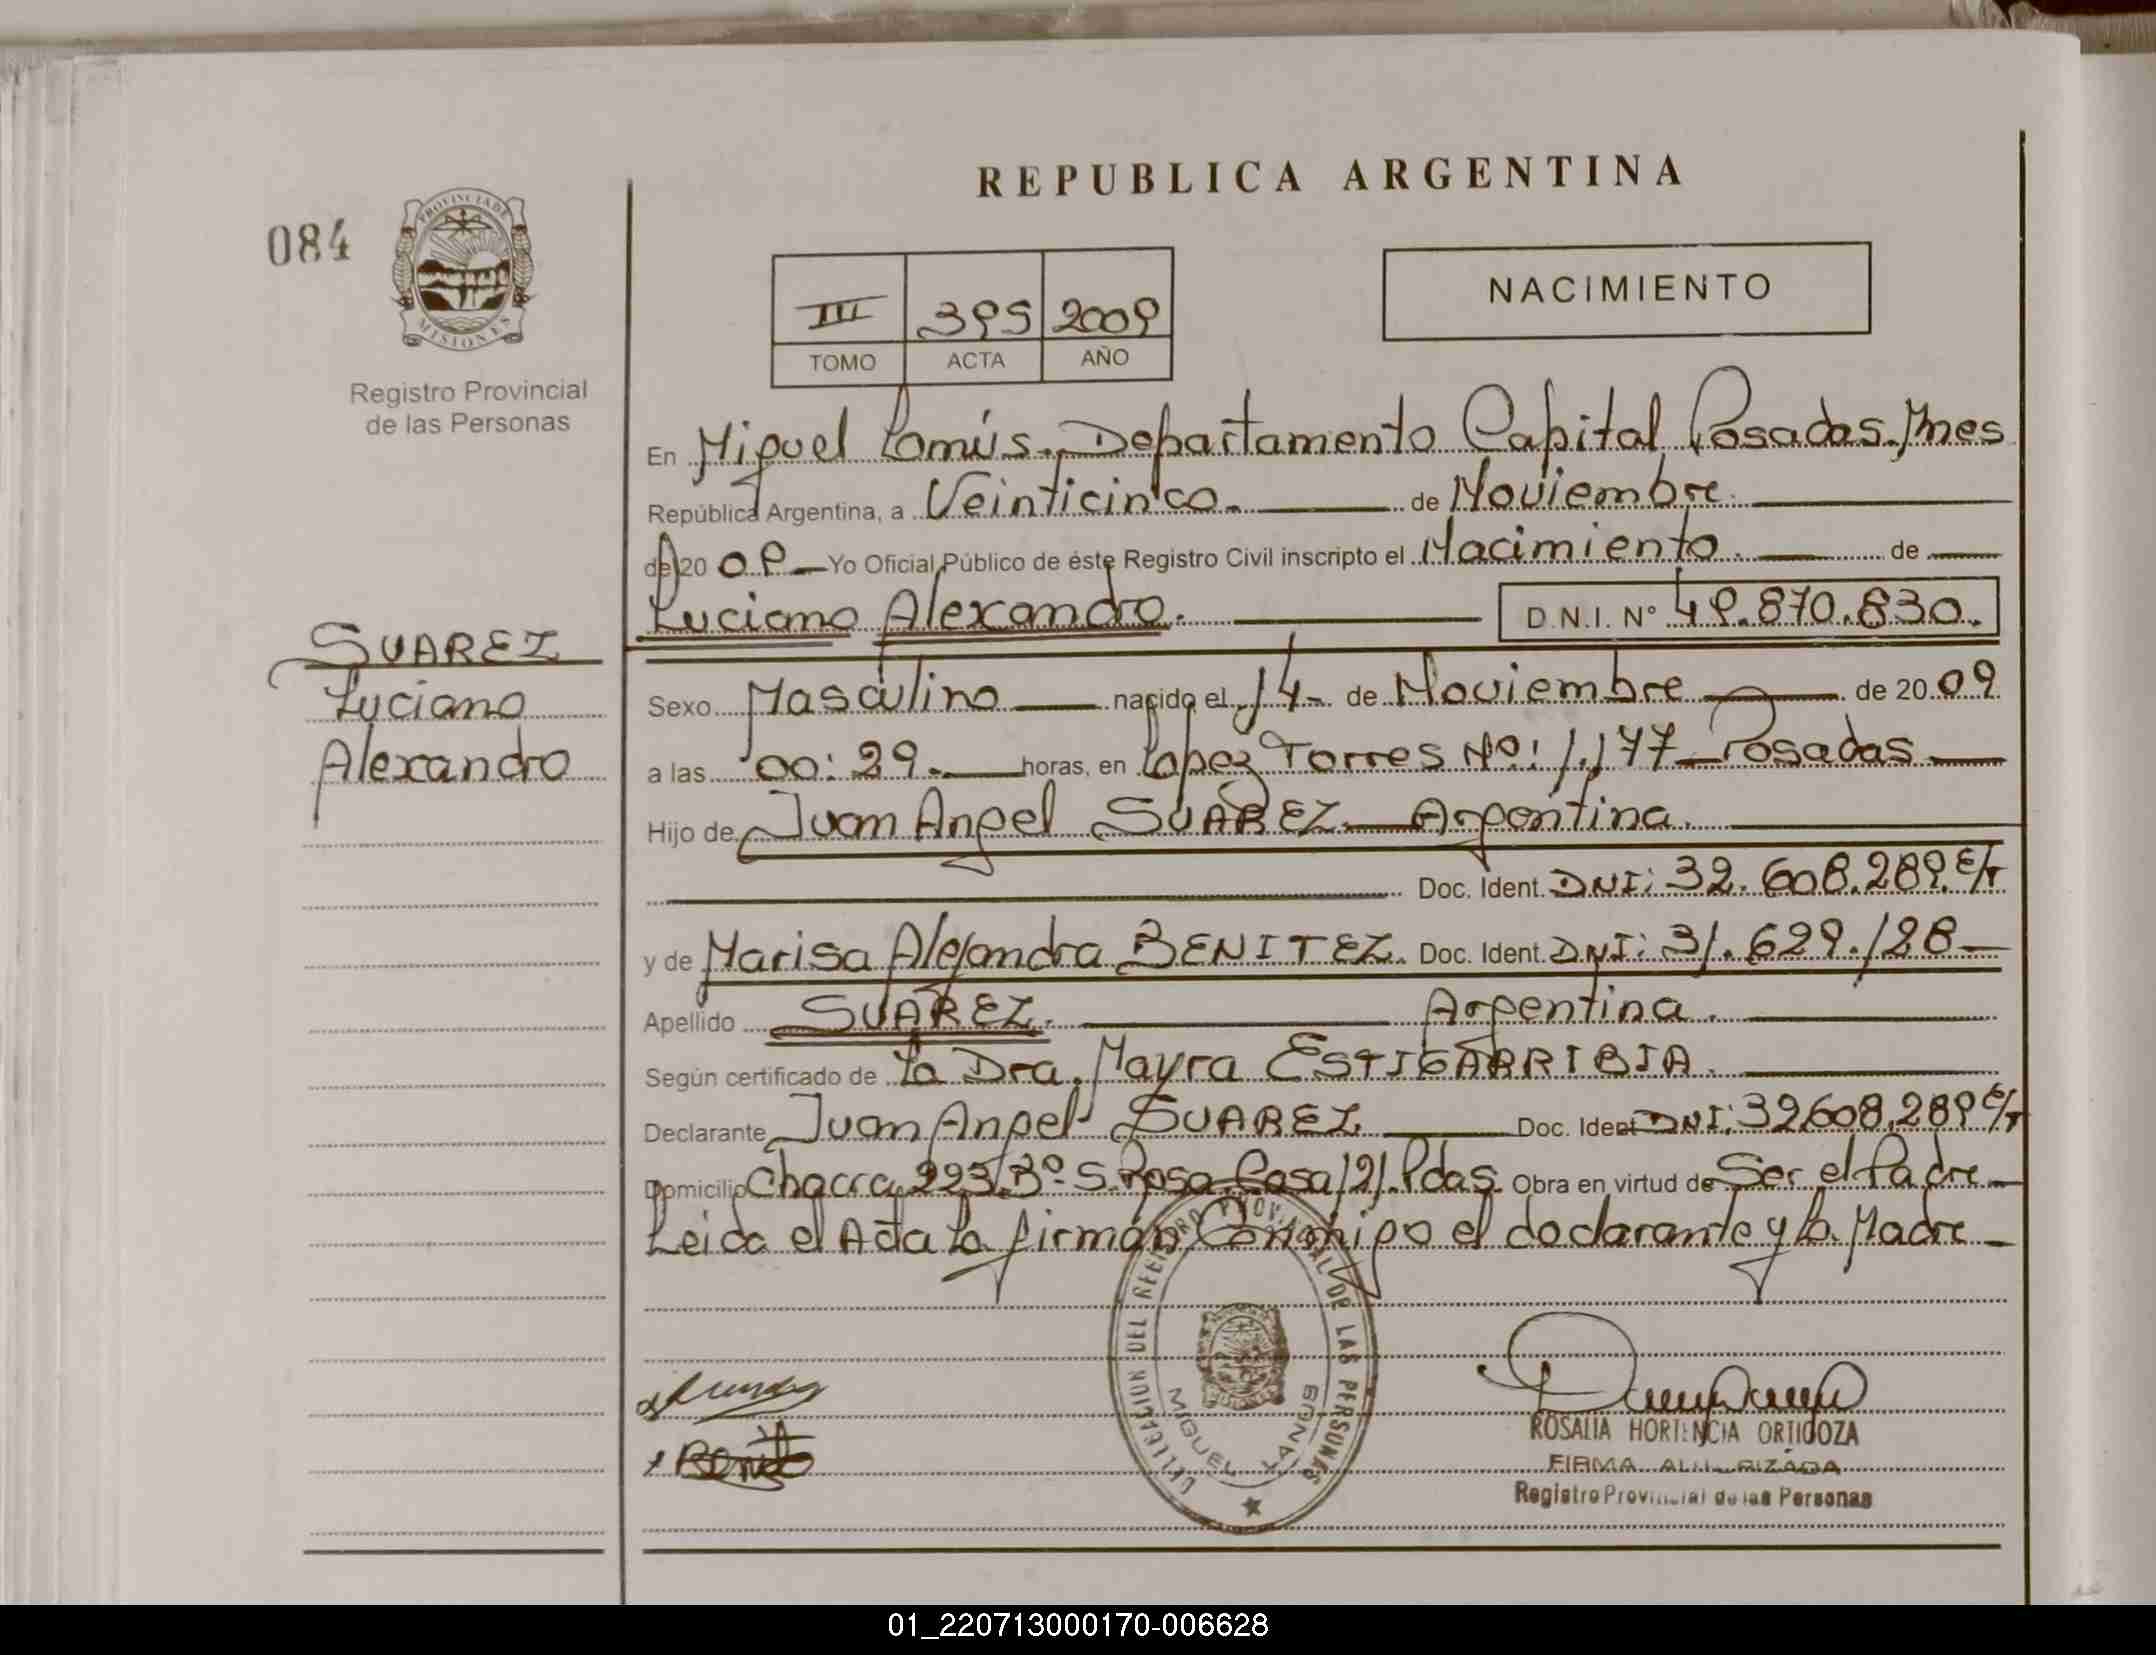 REPUBLICA ARGENTINA
084
PROVINCIA DE
MISIONES
Registro Provincial
de las Personas
III 395 2009
TOMO ACTA AÑO
NACIMIENTO
En Miguel Lanús. Departamento Capital Posadas. Mnes
República Argentina, a Veinticinco. de Noviembre.
de 20 09 Yo Oficial Público de éste Registro Civil inscripto el Nacimiento. de
Luciano Alexandro. D.N.I. Nº 49.870.830.
SUAREZ
Luciano
Alexandro
Sexo Masculino nacido el 14 de Noviembre de 20 09
a las 00:29. horas, en Lopez Torres Nº: 1.177 Posadas
Hijo de Juan Angel SUAREZ Argentina.
Doc. Ident. DNI: 32.608.289. C/T
y de Marisa Alejandra BENITEZ. Doc. Ident. DNI: 31.629.128
Apellido SUAREZ. Argentina.
Según certificado de La Dra. Mayra ESTIGARRIBIA.
Declarante Juan Angel SUAREZ Doc. Ident DNI: 32608.289 C/T
Domicilio Chacra 223 Bº S. Rosa Casa 121. Pdas. Obra en virtud de Ser el Padre
Leida el Acta la firman Conmigo el declarante y la Madre
DELEGACION DEL REGISTRO PROVINCIAL DE LAS PERSONAS
MIGUEL LANUS
ROSALIA HORTENCIA ORTIGOZA
FIRMA AUTORIZADA
Registro Provincial de las Personas
01_220713000170-006628